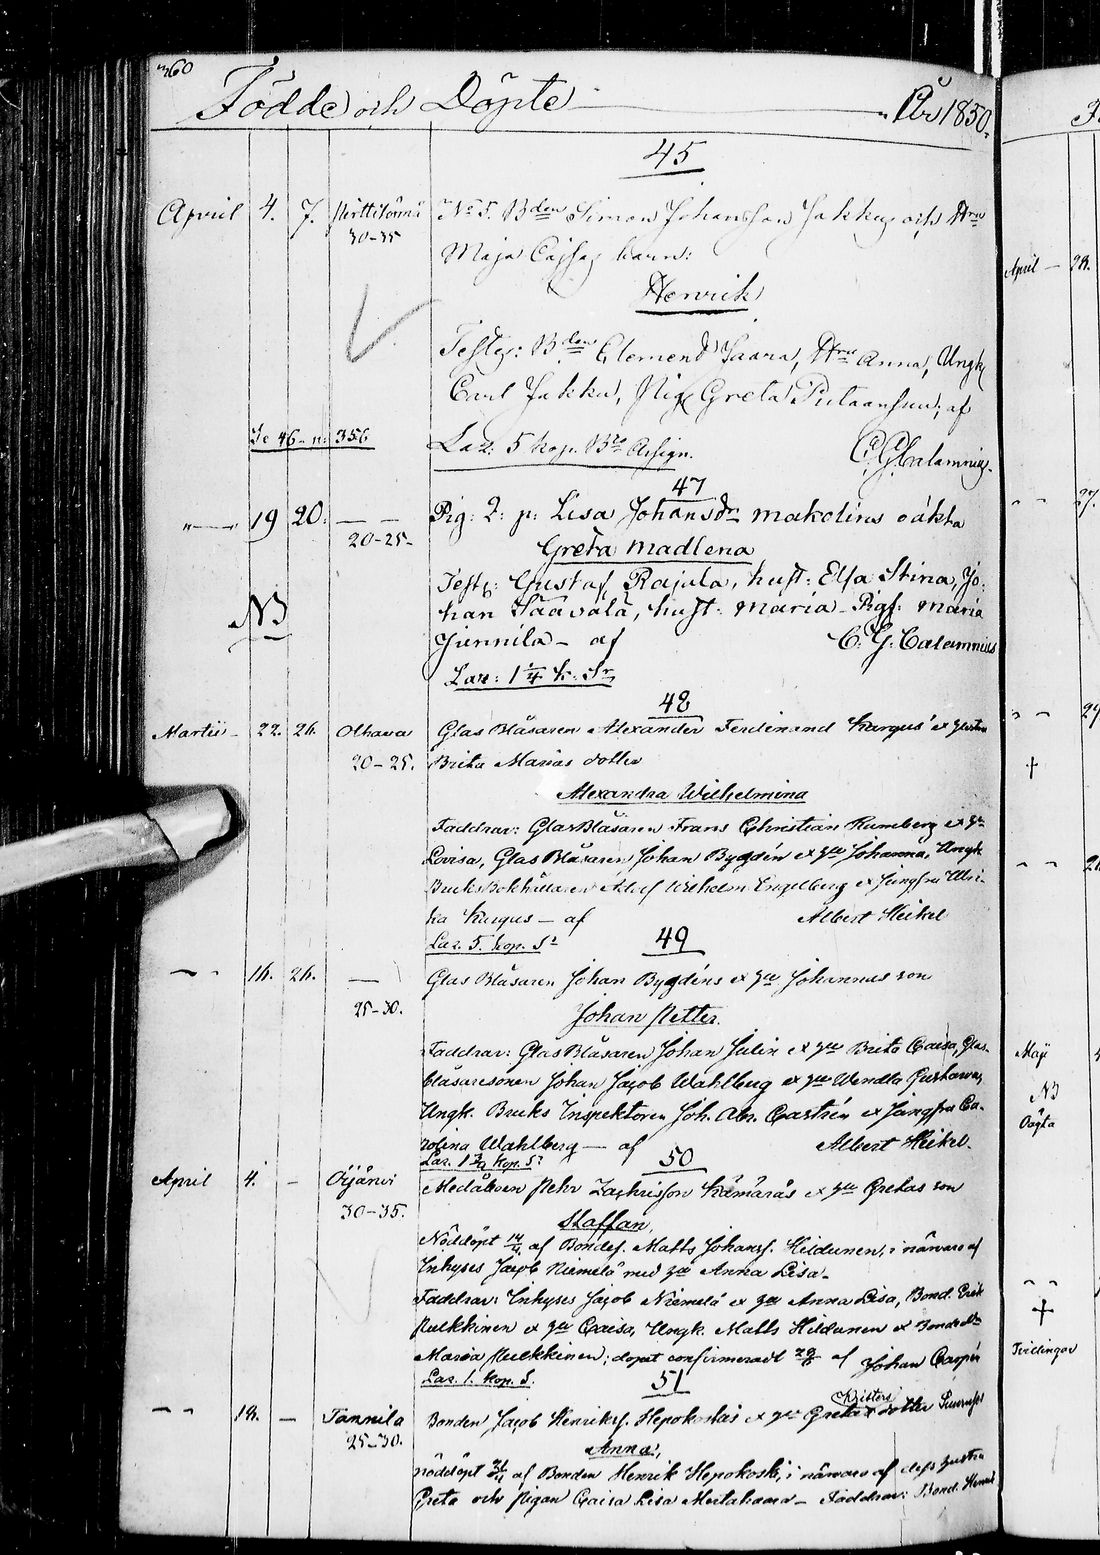 360
Födde och Döpte År 1850.
45
April 4. 7. 30-35 No 5. Bden Simon Johansson Jakku och Hru
Maja Cajsas barn:
Henrik
Test: Bden Clement Saara, Hru Anna, Ungk
Carl Jakku, Pig Greta af
Se 46 - n: 356 Laz: 5 kop. Bco Assign. C.G. Calamnius.
47
"—" 19 20. — — Pig: Lisa Johansdr makolins oäkta
20-25-
Greta Madlena
Test: Gustaf Rajula, hust: Elsa Stina, Jo-
NB han Säävälä, hust: Maria - Pigf: Maria
Junnila - af C. G: Calamnius
Laz: 1 1/4 k: Sr
48
Martii - 22. 26. Olhava Glas Blåsaren Alexander Ferdinand Kurgus' &
20-25. Brita Marias dotter
Alexandra Wilhelmina
Faddrar: Glas Blåsaren Frans Christian &
Lovisa, Glas Blåsaren Johan Bygdén & Johanna, Ungk
Bruks Bokhållaren Adolf Wilhelm Engelberg & Jungfru Ulri-
ka Kurgus - af Albert Heikel
Laz. 5. kop. Sr
49
— " 16. 26. — Glas Blåsaren Johan Bygdéns & Johannas son
25-30.
Johan Petter.
Faddrar: Glas Blåsaren Johan Julin & Brita Caisa, Glas-
blåsaresonen Johan Jacob Wahlberg & Wendla Gustawa,
Ungk. Bruks Inspektoren Joh. Abr. Castrén & Jungfru Ca-
rolina Wahlberg — af Albert Heikel.
Laz. kop. Sr
50
April 4. - Oijärwi Pehr Zachrisson Kämäräs & Gretas son
30-35.
Staffan,
Nöddöpt af Bondes. Matts Johanss. Hildunen, i närwaro af
Inhyses Jacob Niemelä med Anna Lisa-
Faddrar: Inhyses Jacob Niemelä & Anna Lisa, Bond. Erik
Pulkkinen & Caisa, Ungk. Matts Hildunen & Bondedr
Maria Pulkkinen; dopet confirmeradt af Johan
Laz. 1. kop. S.
51
— " 19. - Tannila Bonden Jacob Henrikss. Hepokoskis & Greta dotter
25-30.
Anna,
nöddöpt af Bonden Henrik Hepokoski, i närwaro af dess hustru
Greta och Pigan Caisa Lisa - Faddrar: Bond. Henrik
April — 28.
" — 27.
†
Maji
NB
Oägta
†
Tvillingar